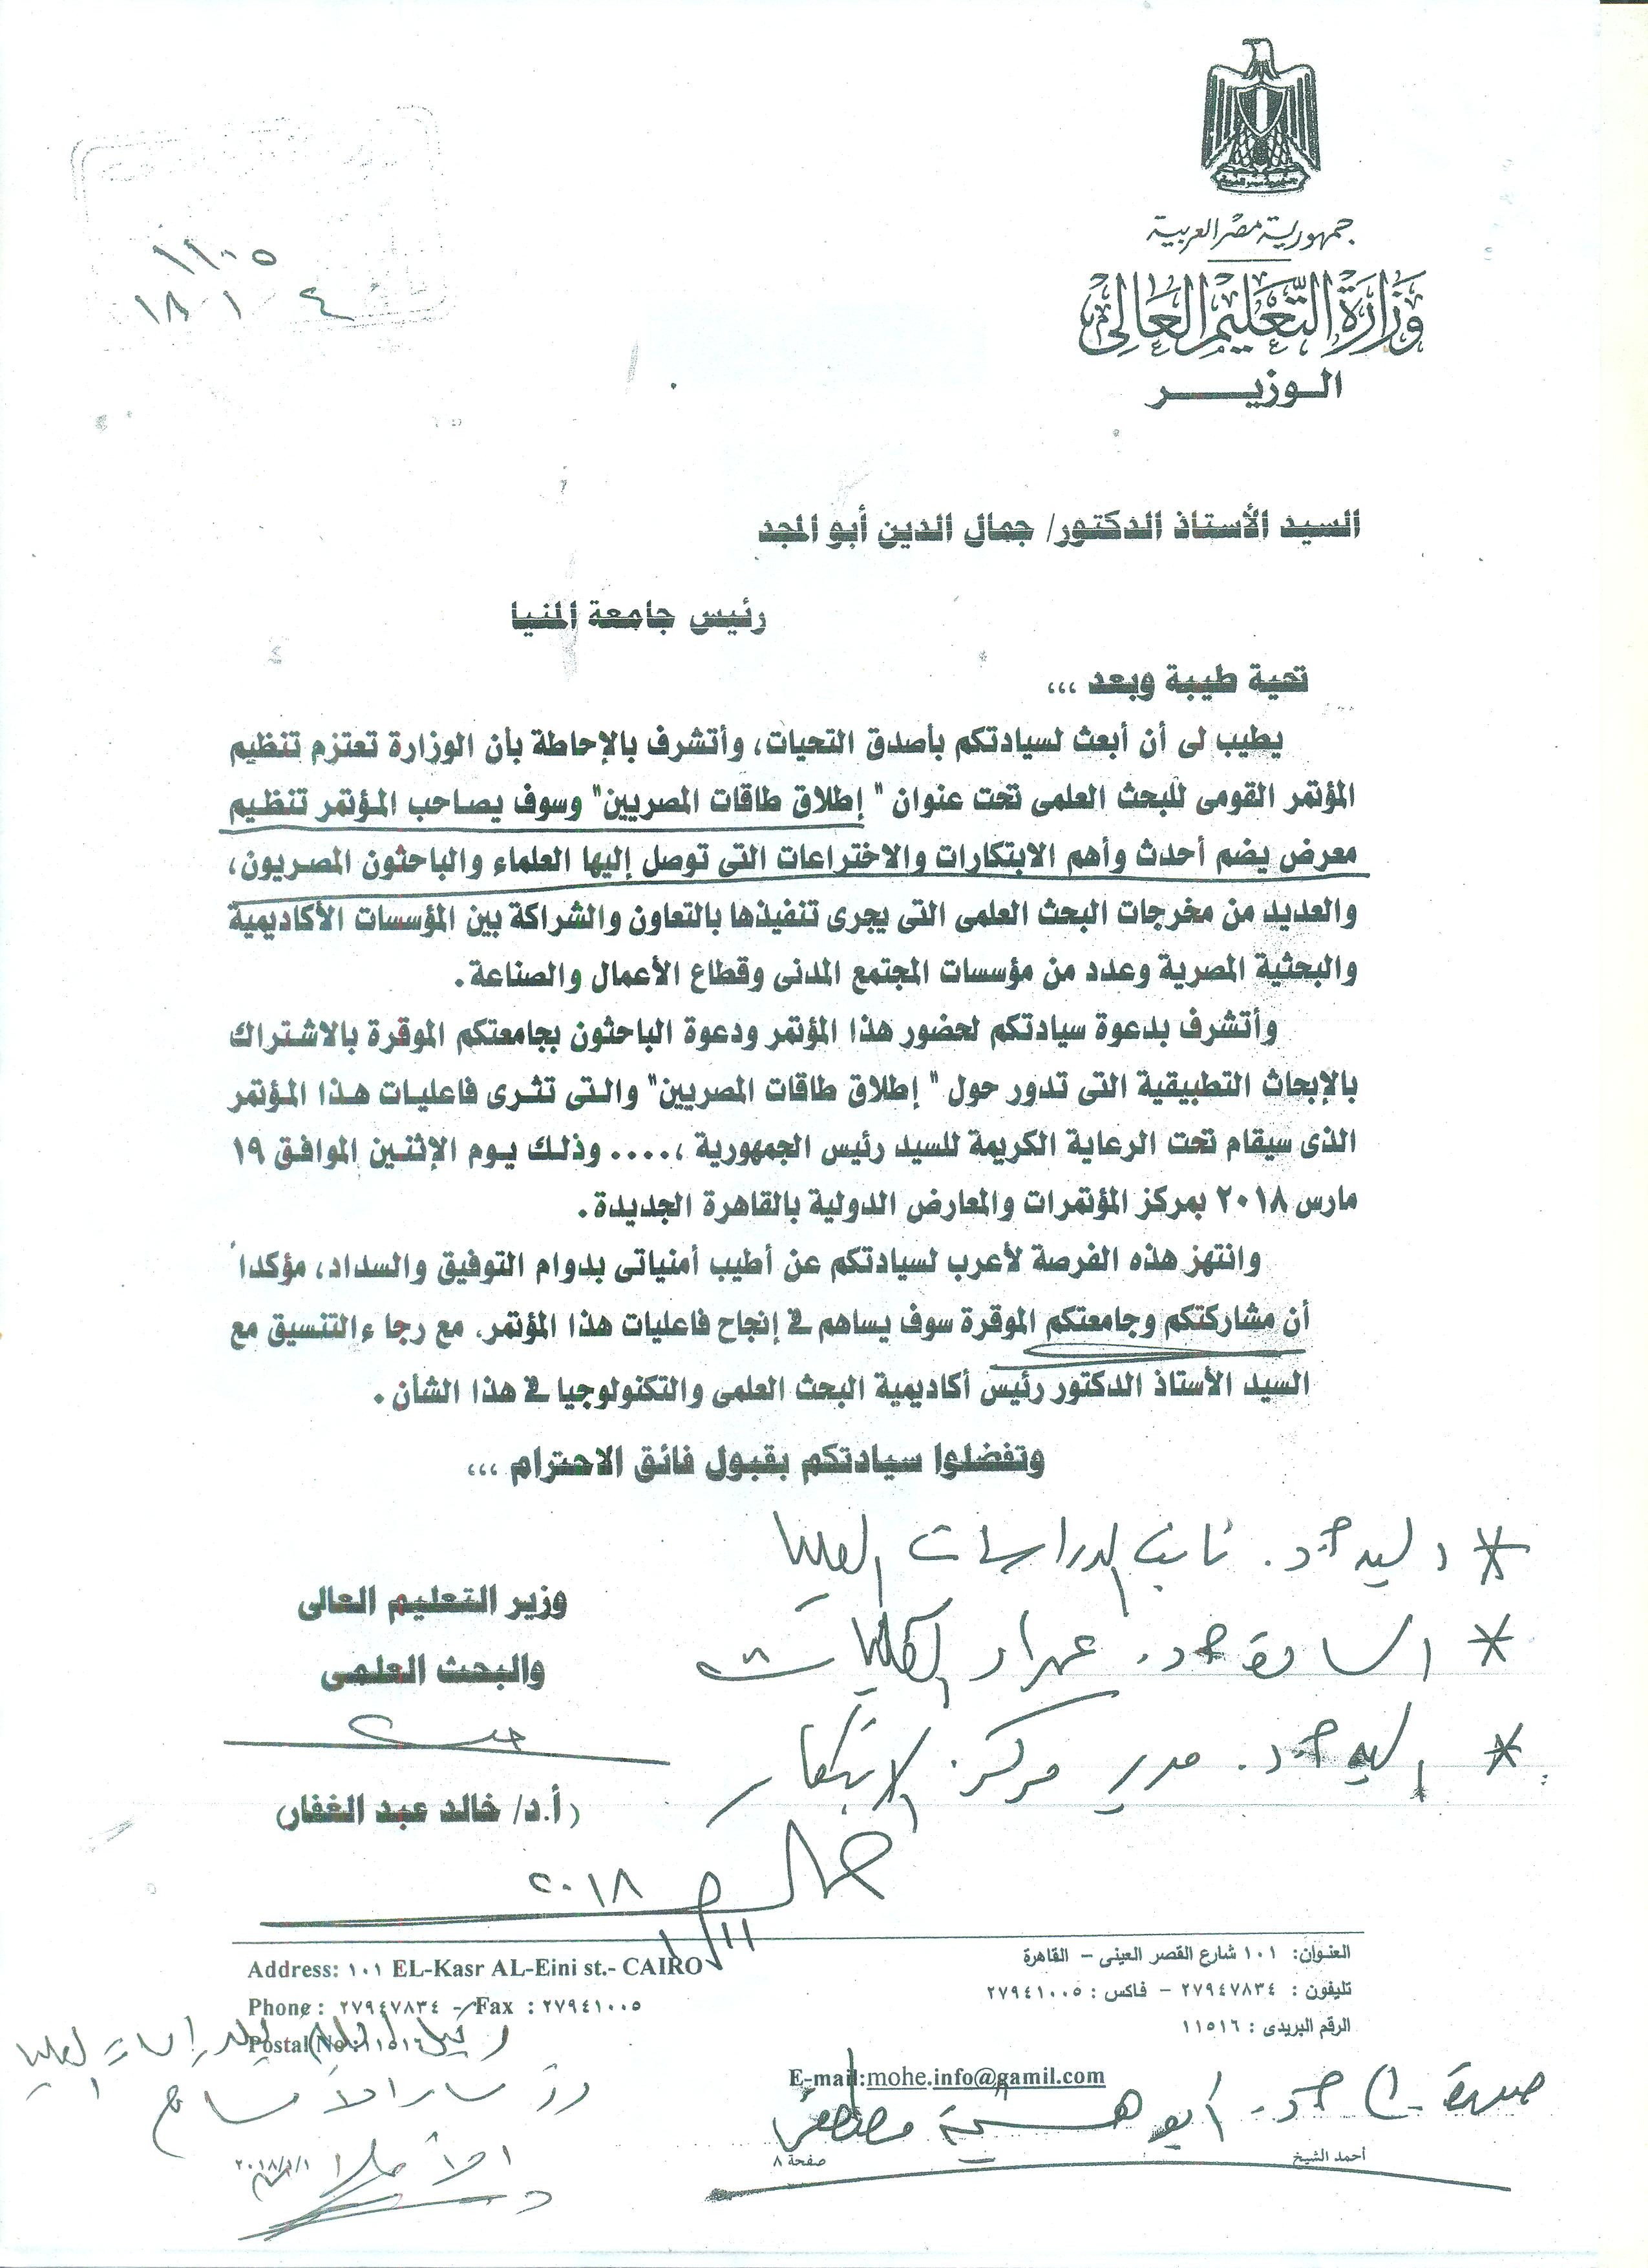 جمهورية مصر العربية
وزارة التعليم العالى
الـوزيـــــر
١١٠٠٥
٤ / ١ / ١٨
السيد الأستاذ الدكتور/ جمال الدين أبو المجد
رئيس جامعة المنيا
تحية طيبة وبعد ،،،
يطيب لى أن أبعث لسيادتكم بأصدق التحيات، وأتشرف بالإحاطة بأن الوزارة تعتزم تنظيم
المؤتمر القومى للبحث العلمى تحت عنوان " إطلاق طاقات المصريين" وسوف يصاحب المؤتمر تنظيم
معرض يضم أحدث وأهم الابتكارات والاختراعات التى توصل إليها العلماء والباحثون المصريون،
والعديد من مخرجات البحث العلمى التى يجرى تنفيذها بالتعاون والشراكة بين المؤسسات الأكاديمية
والبحثية المصرية وعدد من مؤسسات المجتمع المدنى وقطاع الأعمال والصناعة.
وأتشرف بدعوة سيادتكم لحضور هذا المؤتمر ودعوة الباحثون بجامعتكم الموقرة بالاشتراك
بالإبحاث التطبيقية التى تدور حول " إطلاق طاقات المصريين" والتى تثرى فاعليات هذا المؤتمر
الذى سيقام تحت الرعاية الكريمة للسيد رئيس الجمهورية ،.... وذلك يوم الإثنين الموافق ١٩
مارس ٢٠١٨ بمركز المؤتمرات والمعارض الدولية بالقاهرة الجديدة.
وانتهز هذه الفرصة لأعرب لسيادتكم عن أطيب أمنياتى بدوام التوفيق والسداد، مؤكداً
أن مشاركتكم وجامعتكم الموقرة سوف يساهم فى إنجاح فاعليات هذا المؤتمر. مع رجاء التنسيق مع
السيد الأستاذ الدكتور رئيس أكاديمية البحث العلمى والتكنولوجيا فى هذا الشأن .
وتفضلوا سيادتكم بقبول فائق الاحترام ،،،
* السيد أ.د. نائب الدراسات العليا
* السادة أ.د. عمداء الكليات
* السيد أ.د. مدير مركز الابتكار
وزير التعليم العالى
والبحث العلمى
(أ.د/ خالد عبد الغفار)
جمال
١/١١ ٢٠١٨
العنوان: ١٠١ شارع القصر العينى – القاهرة
تليفون : ٢٧٩٤٧٨٣٤ – فاكس : ٢٧٩٤١٠٠٥
الرقم البريدى : ١١٥١٦
Address: ١٠١ EL-Kasr AL-Eini st.- CAIRO
Phone : ٢٧٩٤٧٨٣٤ - Fax : ٢٧٩٤١٠٠٥
Postal No: ١١٥١٦
E-mail:mohe.info@gamil.com
للدراسات العليا
أ.د. أبو هشيمة مصطفى
أحمد الشيخ
صفحة ٨
٢٠١٨/١/١